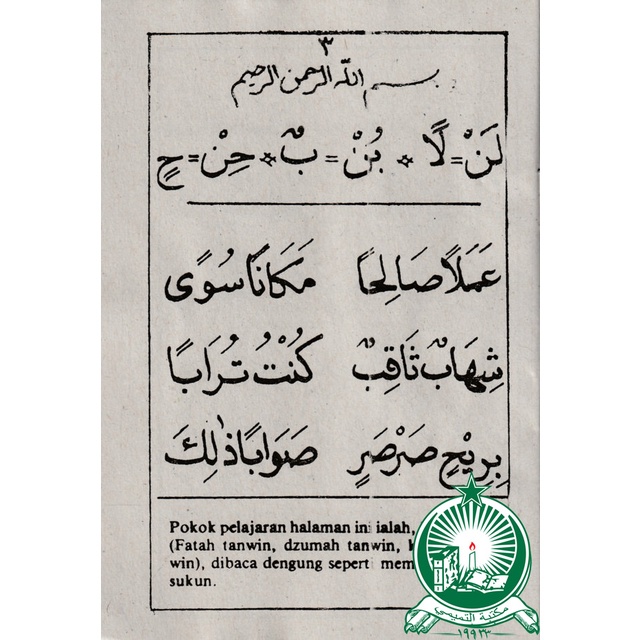 ٣
بسم الله الرحمن الرحيم
لَنْ = لًا * بُنْ = بٌ * حِنْ = حٍ
عَمَلًا صَالِحًا مَكَانًا سُوًى
شِهَابٌ ثَاقِبٌ كُنْتُ تُرَابًا
بِرِيْحٍ صَرْصَرٍ صَوَابًا ذٰلِكَ
Pokok pelajaran halaman ini ialah,
(Fatah tanwin, dzumah tanwin,
win), dibaca dengung seperti mem
sukun.
مكتبة التميمي
١٩٩٣